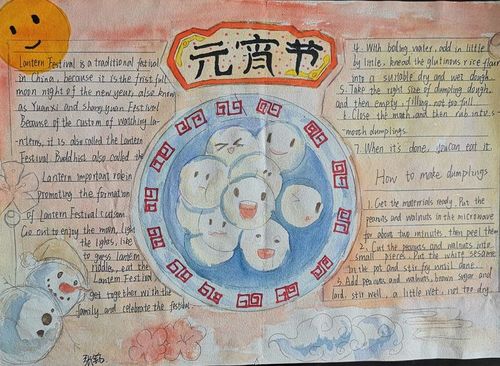 元宵节
Lantern Festival is a traditional festival
in China, because it is the frist full
moon night of the new year, also know
as Yuanxi and Shangyuan Festival
Because of the custom of watching la-
nterns, it is also called the Lantern
Festival. Buddhist also called the
Lantern important role in
promoting the formation
of Lantern Festival custom
Go out to enjoy the moon, light
the lights, like
to guess lantern
riddle, eat the
Lantern Festival
get together with the
family and celebrate the festival.
4. With boiling water, add in little
by little, knead the glutinous rice flour
into a suitable dry and wet dough.
5. Take the right size of dumpling dough,
and then empty, filling, not too full.
6. Close the mouth and then rub into s-
mooth dumplings.
7. When it's done, you can eat it.
How to make dumplings
1. Get the materials ready. Put the
peanuts and walnuts in the microwave
for about two minutes then peel them
2. Cut the peanuts and walnuts into
small pieces. Put the white sesame
in the pot and stir fry until done
3. Add peanuts and walnuts, brown sugar and
lard, stir well, a little wet, not too dry.